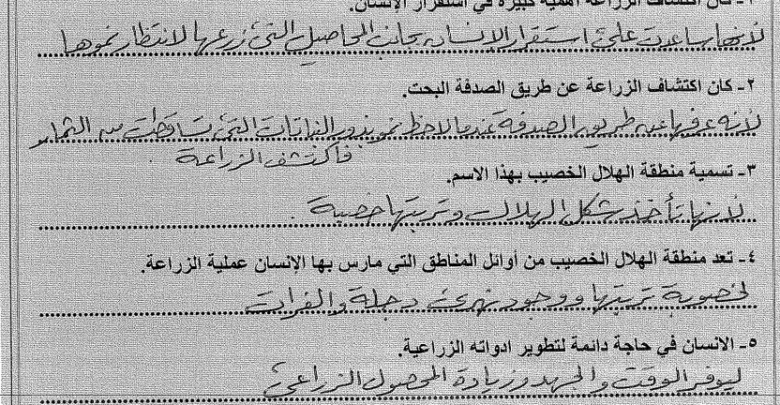 ١- كان اكتشاف الزراعة أهمية كبيرة في استقرار الإنسان.
لأنها ساعدت على استقرار الإنسان بجانب المحاصيل التي زرعها لانتظار نموها
٢- كان اكتشاف الزراعة عن طريق الصدفة البحت.
لأنه عرفها عن طريق الصدفة عندما لاحظ نمو بذور النباتات التي تساقطت من الثمار
فاكتشف الزراعة .
٣- تسمية منطقة الهلال الخصيب بهذا الاسم.
لأنها تأخذ شكل الهلال وتربتها خصبة .
٤- تعد منطقة الهلال الخصيب من أوائل المناطق التي مارس بها الإنسان عملية الزراعة.
لخصوبة تربتها ووجود نهري دجلة والفرات
٥- الانسان في حاجة دائمة لتطوير ادواته الزراعية.
ليوفر الوقت والجهد وزيادة المحصول الزراعي